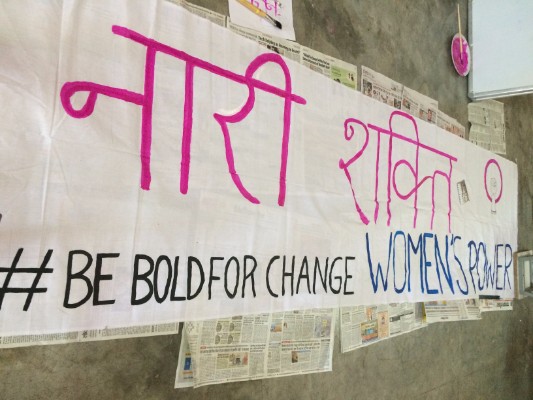 नारी शक्ति
# BE BOLD FOR CHANGE WOMEN'S POWER